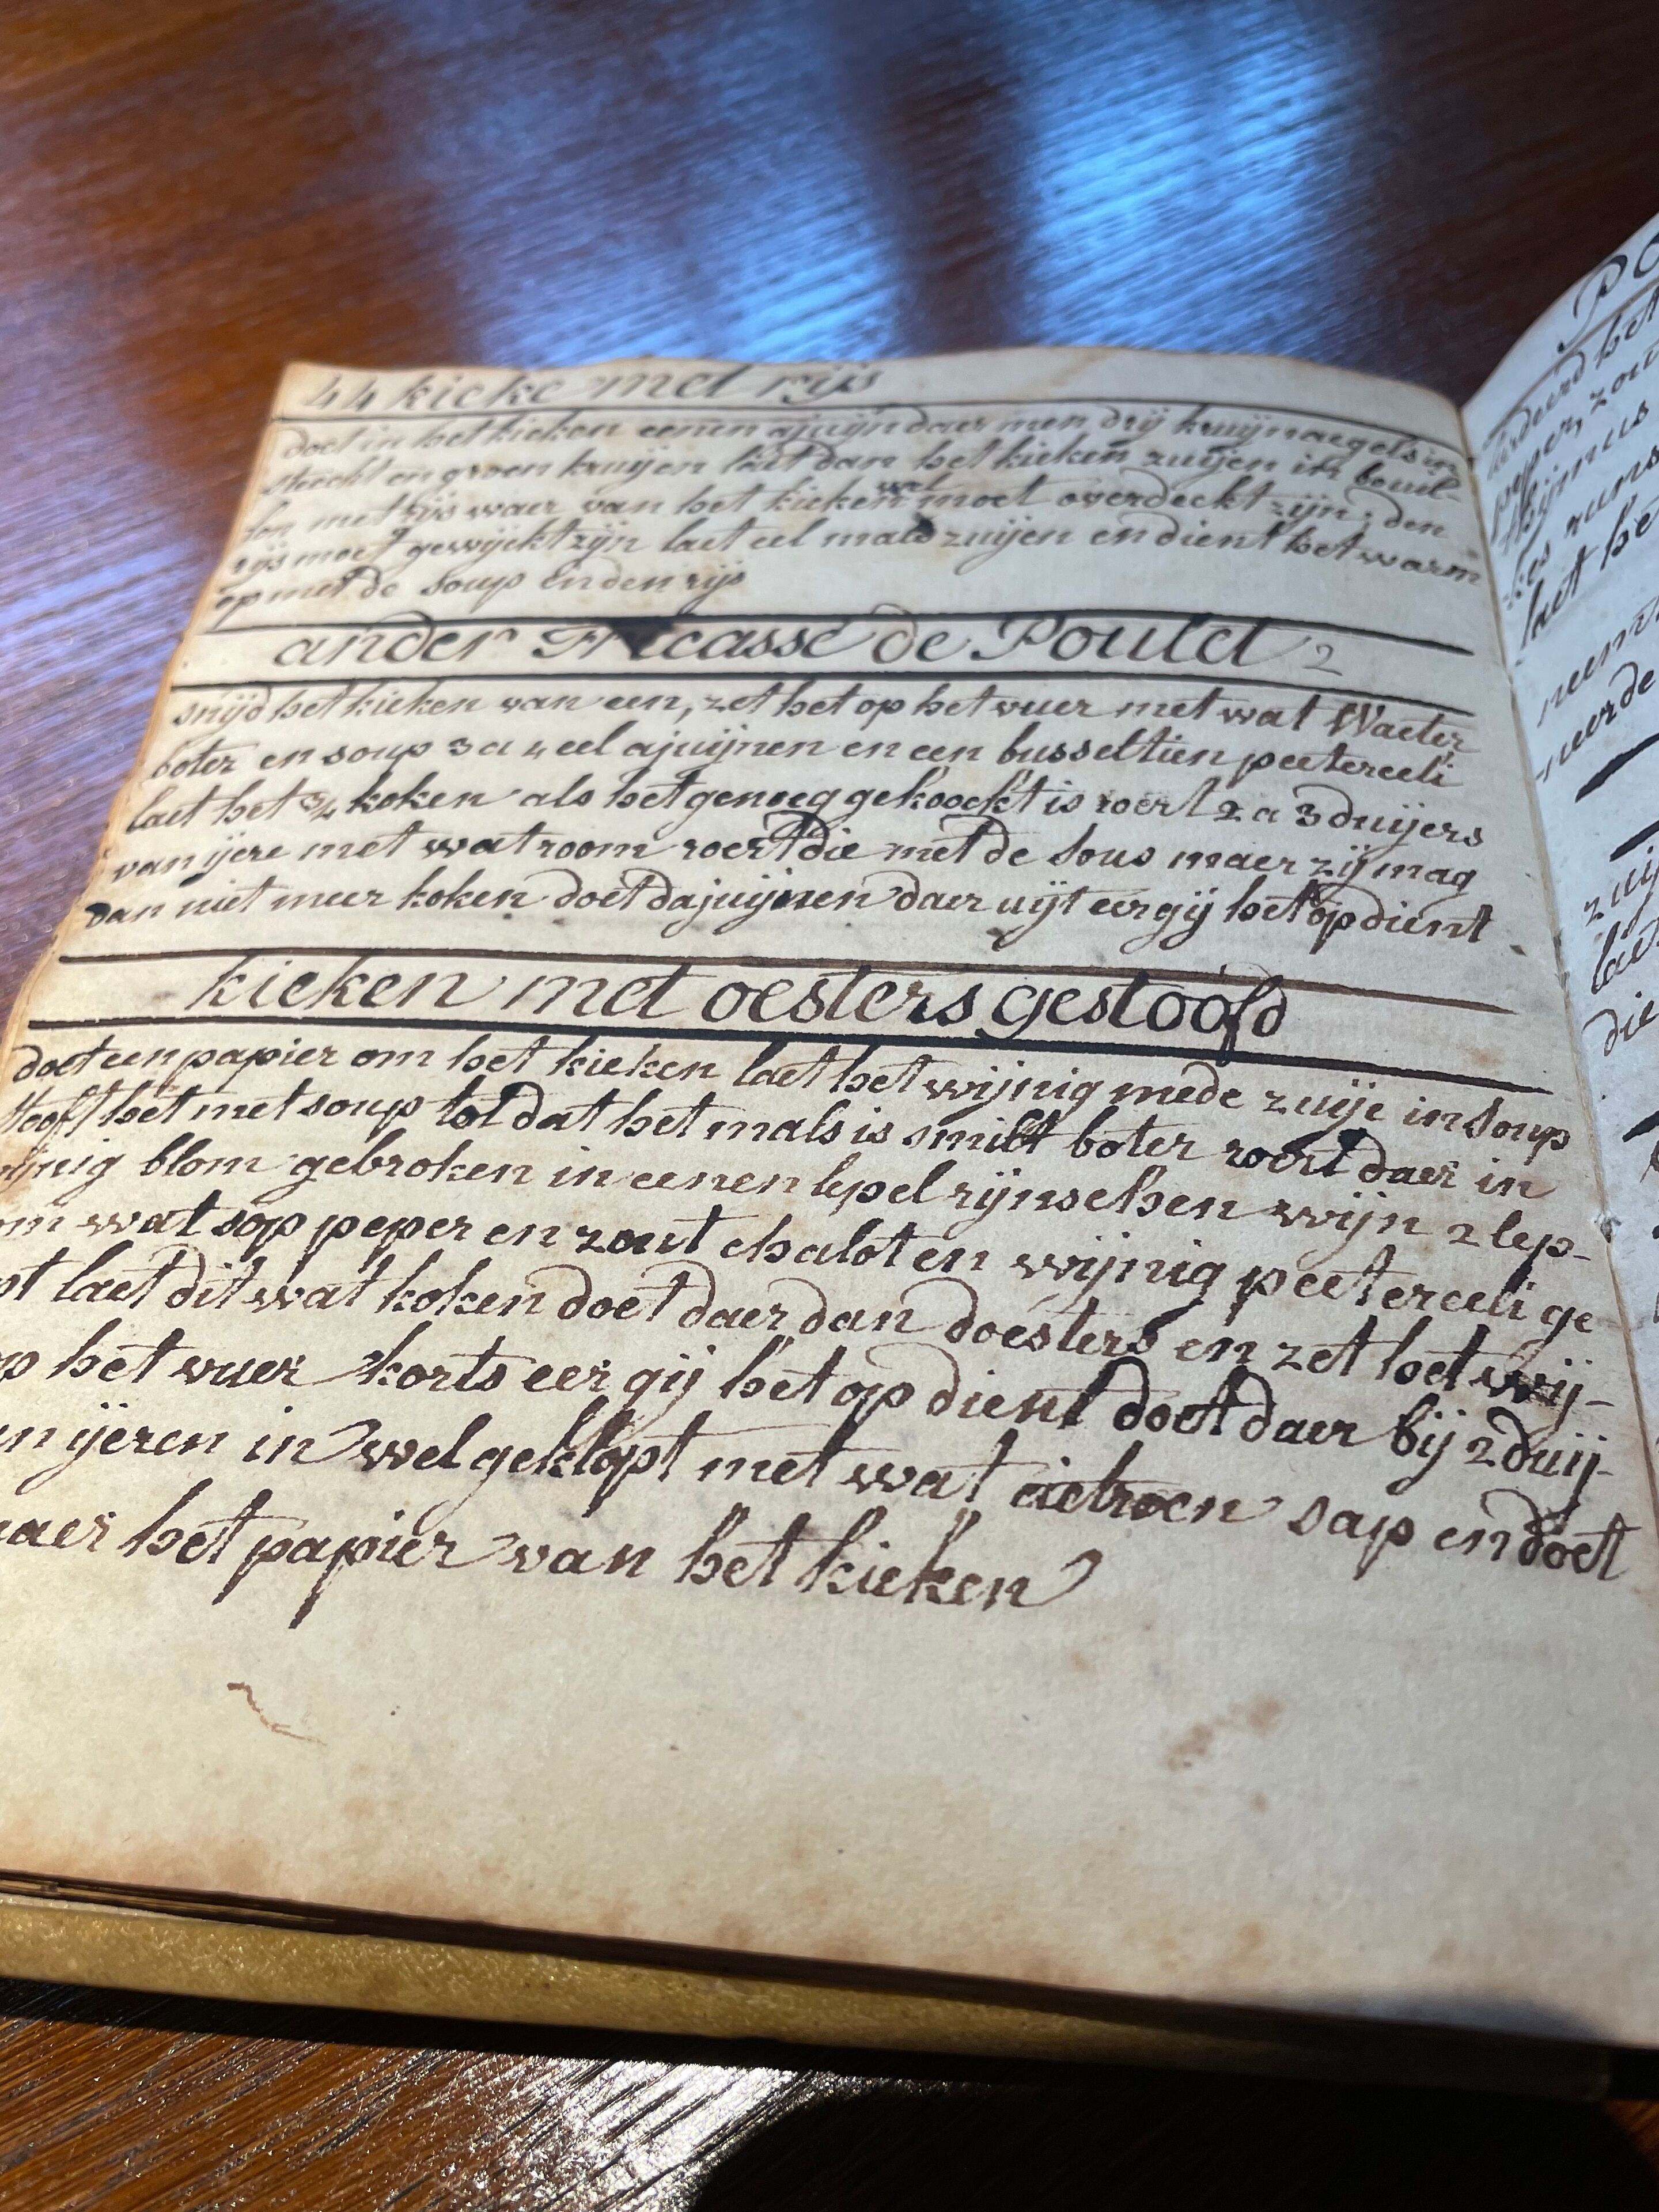 44 kieke met rijs
doet in het kieken eenen ajuijn daer men drij kruijnaegels in
steeckt en groen kruijen laet dan het kieken zuijen in bouil-
lon met rijs waer van het kieken wel moet overdeckt zijn; den
rijs moet gewyckt zijn laet eel mals zuijen en dient het warm
op met de soup en den rijs
ander Fricassé de Poulet 2
snijd het kieken van een, zet het op het vuer met wat Waeter
boter en soup 3 a 4 eel ajuijnen en een busseltien peeterceli
laet het 3/4 koken als het genoeg gekoockt is roert 2 a 3 duijers
van ijere met wat room roert die met de sous maer zij mag
dan niet meer koken doet dajuijnen daer uijt eer gij het op dient
kieken met oesters gestoofd
doet een papier om het kieken laet het wijnig mede zuije in soup
stooft het met soup tot dat het mals is smilt boter roert daer in
wijnig blom gebroken in eenen lepel rijnschen wijn 2 lep-
om wat sop peper en zout chalot en wijnig peeterceli ge
pt laet dit wat koken doet daer dan doesters en zet het wij-
op het vuer korts eer gij het op dient doet daer bij 2 duij-
n ijeren in wel geklopt met wat citroen sap en doet
aer het papier van het kieken
PO
peper, zou
laet he
neemt
zuij
laet
die